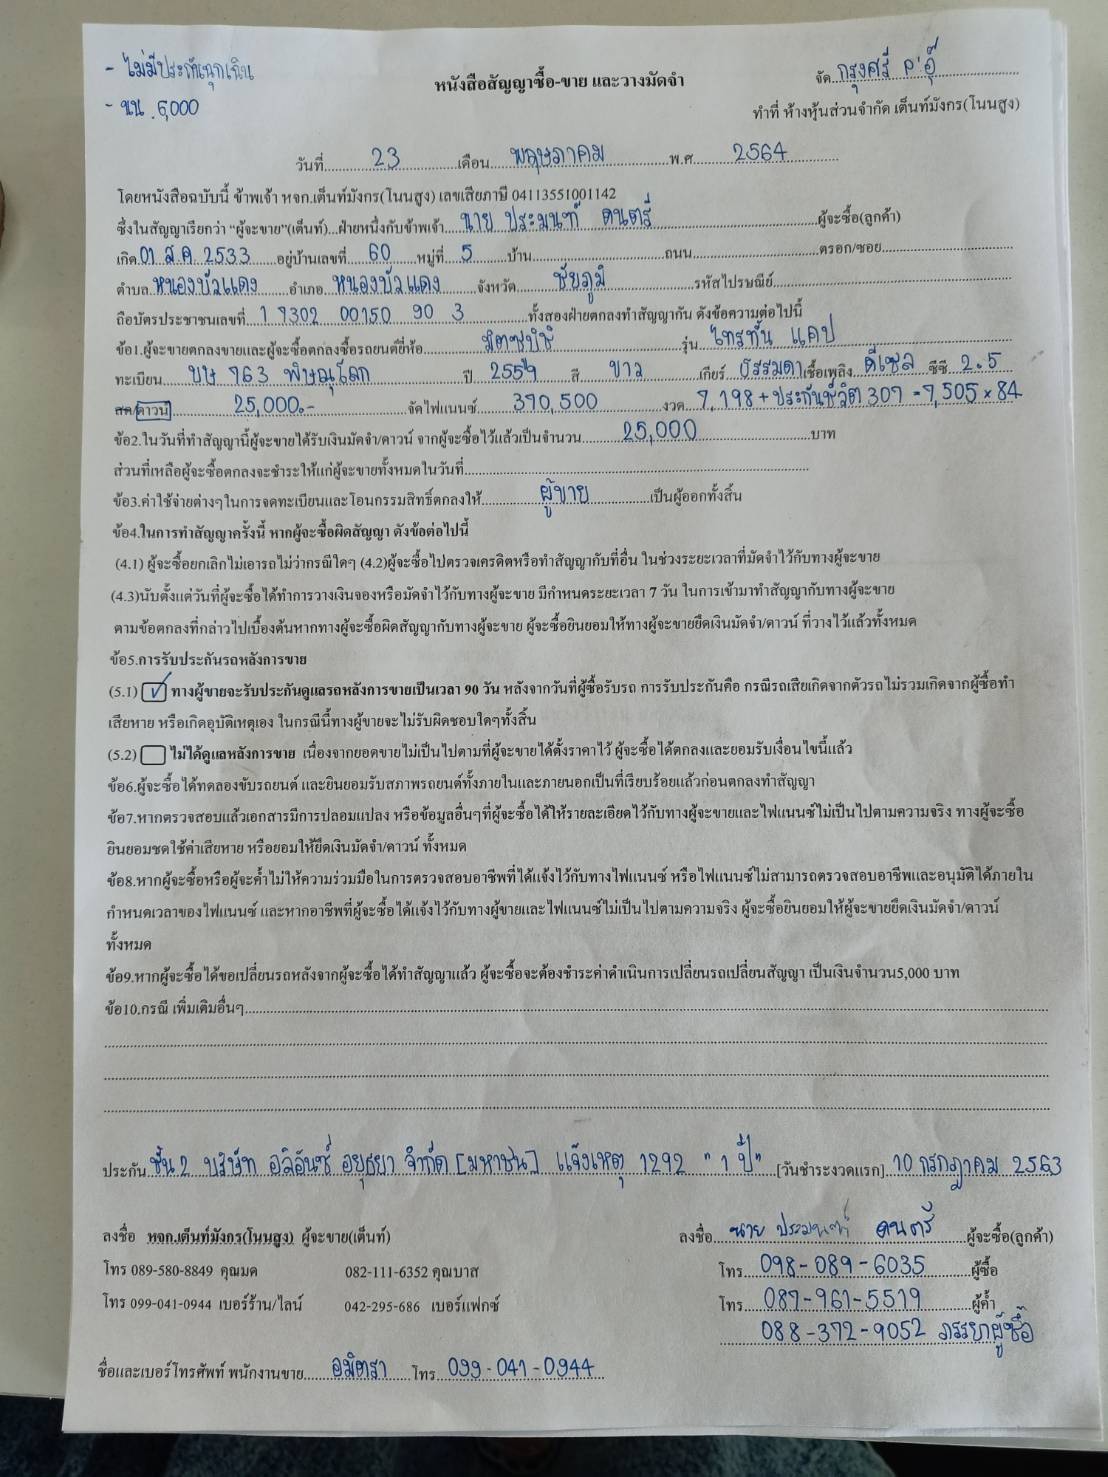 - ไม่มีประกันฉุกเฉิน
- นน. 6,000
หนังสือสัญญาซื้อ-ขาย และวางมัดจำ
จัด กรุงศรี P'อุ๊
ทำที่ ห้างหุ้นส่วนจำกัด เต็นท์มังกร(โนนสูง)
วันที่ 23 เดือน พฤษภาคม พ.ศ 2564
โดยหนังสือฉบับนี้ ข้าพเจ้า หจก.เต็นท์มังกร(โนนสูง) เลขเสียภาษี 04113551001142
ซึ่งในสัญญาเรียกว่า "ผู้จะขาย"(เต็นท์)...ฝ่ายหนึ่งกับข้าพเจ้า นาย ประมนท์ ดนตรี ผู้จะซื้อ(ลูกค้า)
เกิด 01 ส.ค. 2533 อยู่บ้านเลขที่ 60 หมู่ที่ 5 บ้าน ถนน ตรอก/ซอย
ตำบล หนองบัวแดง อำเภอ หนองบัวแดง จังหวัด ชัยภูมิ รหัสไปรษณีย์
ถือบัตรประชาชนเลขที่ 1 7302 00150 90 3 ทั้งสองฝ่ายตกลงทำสัญญากัน ดังข้อความต่อไปนี้
ข้อ1.ผู้จะขายตกลงขายและผู้จะซื้อตกลงซื้อรถยนต์ยี่ห้อ มิตซูบิชิ รุ่น ไทรทัน แคป
ทะเบียน บษ 763 พิษณุโลก ปี 2559 สี ขาว เกียร์ ธรรมดา เชื้อเพลิง ดีเซล ซีซี 2.5
สด/ดาวน์ 25,000.- จัดไฟแนนซ์ 370,500 งวด 7,198 + ประกันชีวิต 307 = 7,505 x 84
ข้อ2.ในวันที่ทำสัญญานี้ผู้จะขายได้รับเงินมัดจำ/ดาวน์ จากผู้จะซื้อไว้แล้วเป็นจำนวน 25,000 บาท
ส่วนที่เหลือผู้จะซื้อตกลงจะชำระให้แก่ผู้จะขายทั้งหมดในวันที่
ข้อ3.ค่าใช้จ่ายต่างๆในการจดทะเบียนและโอนกรรมสิทธิ์ตกลงให้ ผู้ขาย เป็นผู้ออกทั้งสิ้น
ข้อ4.ในการทำสัญญาครั้งนี้ หากผู้จะซื้อผิดสัญญา ดังข้อต่อไปนี้
(4.1) ผู้จะซื้อยกเลิกไม่เอารถไม่ว่ากรณีใดๆ (4.2)ผู้จะซื้อไปตรวจเครดิตหรือทำสัญญากับที่อื่น ในช่วงระยะเวลาที่มัดจำไว้กับทางผู้จะขาย
(4.3)นับตั้งแต่วันที่ผู้จะซื้อได้ทำการวางเงินจองหรือมัดจำไว้กับทางผู้จะขาย มีกำหนดระยะเวลา 7 วัน ในการเข้ามาทำสัญญากับทางผู้จะขาย
ตามข้อตกลงที่กล่าวไปเบื้องต้นหากทางผู้จะซื้อผิดสัญญากับทางผู้จะขาย ผู้จะซื้อยินยอมให้ทางผู้จะขายยึดเงินมัดจำ/ดาวน์ ที่วางไว้แล้วทั้งหมด
ข้อ5.การรับประกันรถหลังการขาย
(5.1) ✓ ทางผู้ขายจะรับประกันดูแลรถหลังการขายเป็นเวลา 90 วัน หลังจากวันที่ผู้ซื้อรับรถ การรับประกันคือ กรณีรถเสียเกิดจากตัวรถไม่รวมเกิดจากผู้ซื้อทำ
เสียหาย หรือเกิดอุบัติเหตุเอง ในกรณีนี้ทางผู้ขายจะไม่รับผิดชอบใดๆทั้งสิ้น
(5.2) ไม่ได้ดูแลหลังการขาย เนื่องจากยอดขายไม่เป็นไปตามที่ผู้จะขายได้ตั้งราคาไว้ ผู้จะซื้อได้ตกลงและยอมรับเงื่อนไขนี้แล้ว
ข้อ6.ผู้จะซื้อได้ทดลองขับรถยนต์ และยินยอมรับสภาพรถยนต์ทั้งภายในและภายนอกเป็นที่เรียบร้อยแล้วก่อนตกลงทำสัญญา
ข้อ7.หากตรวจสอบแล้วเอกสารมีการปลอมแปลง หรือข้อมูลอื่นๆที่ผู้จะซื้อได้ให้รายละเอียดไว้กับทางผู้จะขายและไฟแนนซ์ไม่เป็นไปตามความจริง ทางผู้จะซื้อ
ยินยอมชดใช้ค่าเสียหาย หรือยอมให้ยึดเงินมัดจำ/ดาวน์ ทั้งหมด
ข้อ8.หากผู้จะซื้อหรือผู้จะค้ำไม่ให้ความร่วมมือในการตรวจสอบอาชีพที่ได้แจ้งไว้กับทางไฟแนนซ์ หรือไฟแนนซ์ไม่สามารถตรวจสอบอาชีพและอนุมัติได้ภายใน
กำหนดเวลาของไฟแนนซ์ และหากอาชีพที่ผู้จะซื้อได้แจ้งไว้กับทางผู้ขายและไฟแนนซ์ไม่เป็นไปตามความจริง ผู้จะซื้อยินยอมให้ผู้จะขายยึดเงินมัดจำ/ดาวน์
ทั้งหมด
ข้อ9.หากผู้จะซื้อได้ขอเปลี่ยนรถหลังจากผู้จะซื้อได้ทำสัญญาแล้ว ผู้จะซื้อจะต้องชำระค่าดำเนินการเปลี่ยนรถเปลี่ยนสัญญา เป็นเงินจำนวน5,000 บาท
ข้อ10.กรณี เพิ่มเติมอื่นๆ
ประกัน ชั้น 2 บริษัท อลิอันซ์ อยุธยา จำกัด [มหาชน] แจ้งเหตุ 1292 "1 ปี" [วันชำระงวดแรก] 10 กรกฎาคม 2563
ลงชื่อ หจก.เต็นท์มังกร(โนนสูง) ผู้จะขาย(เต็นท์) ลงชื่อ นาย ประมนท์ ดนตรี ผู้จะซื้อ(ลูกค้า)
โทร 089-580-8849 คุณมด 082-111-6352 คุณบาส โทร 098-089-6035 ผู้ซื้อ
โทร 099-041-0944 เบอร์ร้าน/ไลน์ 042-295-686 เบอร์แฟกซ์ โทร 087-961-5519 ผู้ค้ำ
088-372-9052 ภรรยาผู้ซื้อ
ชื่อและเบอร์โทรศัพท์ พนักงานขาย อมิตรา โทร 099-041-0944